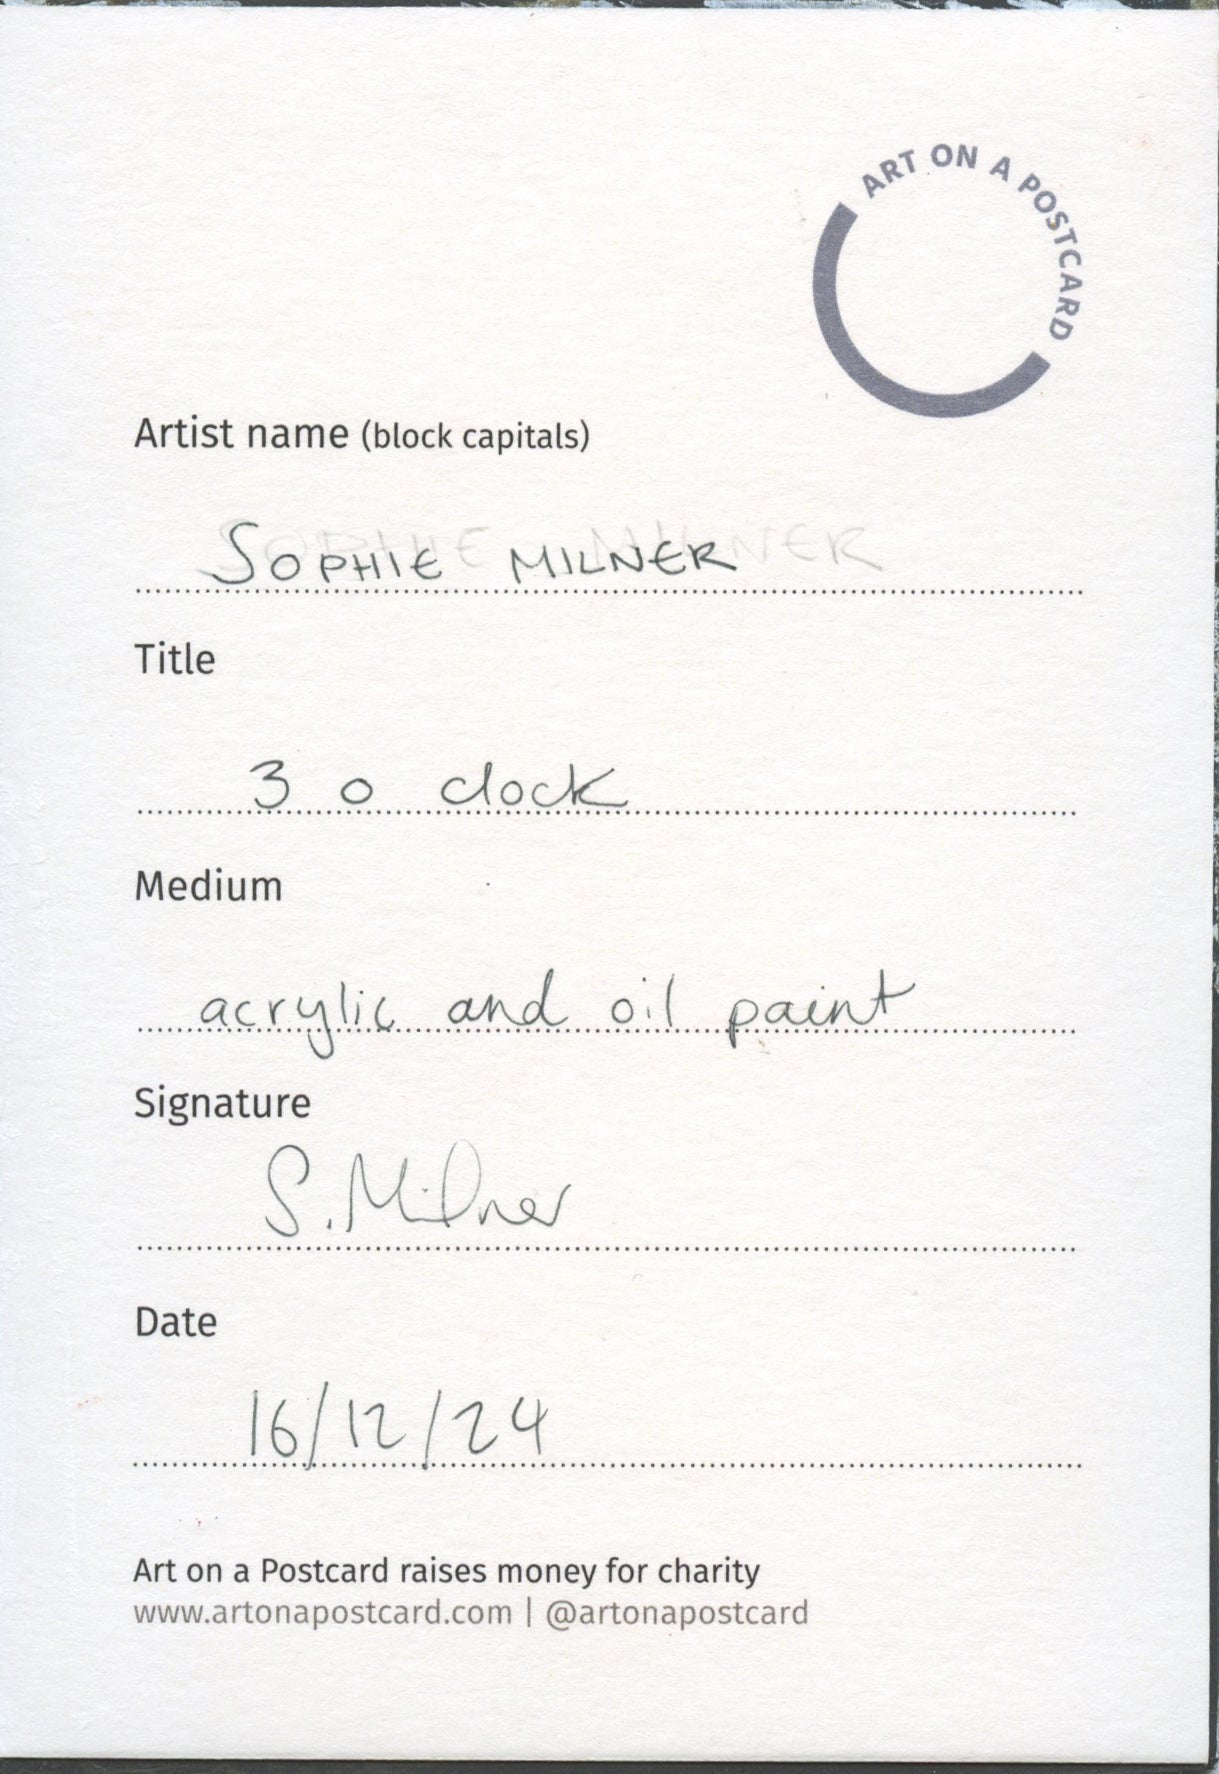 ART ON A POSTCARD
Artist name (block capitals)
SOPHIE MILNER
Title
3 o clock
Medium
acrylic and oil paint
Signature
S. Milner
Date
16/12/24
Art on a Postcard raises money for charity
www.artonapostcard.com | @artonapostcard